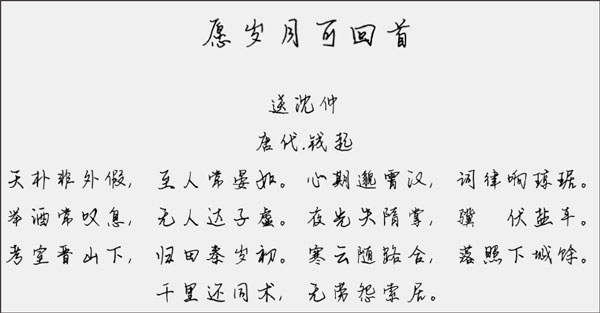 愿岁月可回首
送沈仲
唐代.钱起
天朴非外假, 至人常晏如。 心期邈霄汉, 词律响琼琚。
举酒常叹息, 无人达子虚。 夜光失隋掌, 骥 伏盐车。
考室晋山下, 归田秦岁初。 寒云随路合, 落照下城馀。
千里还同术, 无劳怨索居。